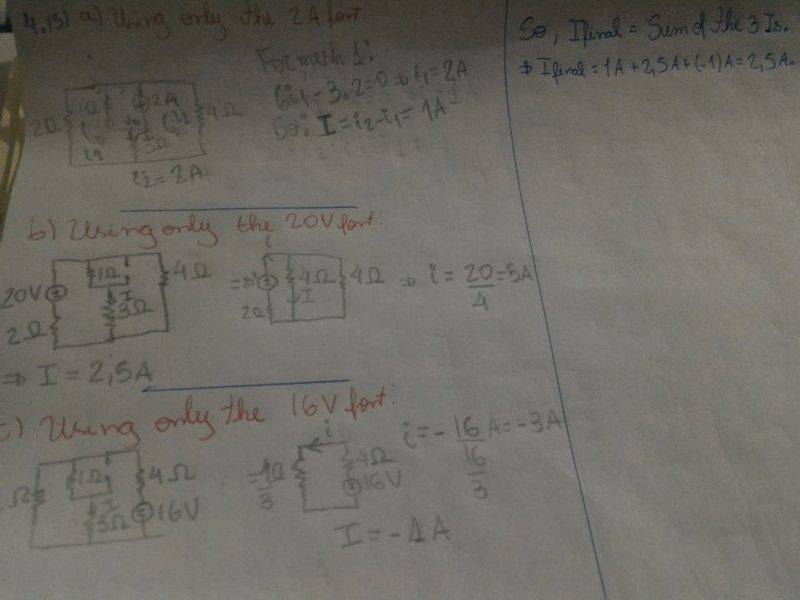 4.15) a) Using only the 2A font:
For mesh 1:
6i1 - 3.2=0 ⇒ i1 = 2A
So: I = i2-i1= 1A
2Ω 1Ω 2A 4Ω
3Ω
i1
i2 = 2A
b) Using only the 20V font:
20V 1Ω 4Ω
I
3Ω
2Ω
i
4Ω 4Ω
I
2Ω
⇒ i = 20/4 = 5A
⇒ I = 2,5A
c) Using only the 16V font:
Ω 1Ω 4Ω
I
3Ω 16V
i
4Ω
16V
i = - 16/(16/3) A = -3A
I = -1A
So, Ifinal = Sum of the 3 Is.
⇒ Ifinal = 1A + 2,5A + (-1)A = 2,5A.